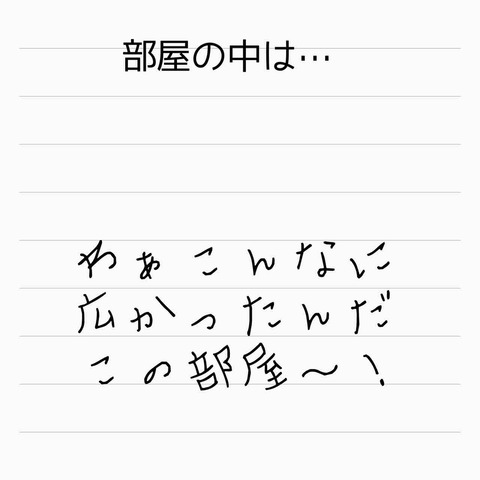 部屋の中は…
わぁこんなに
広かったんだ
この部屋〜！